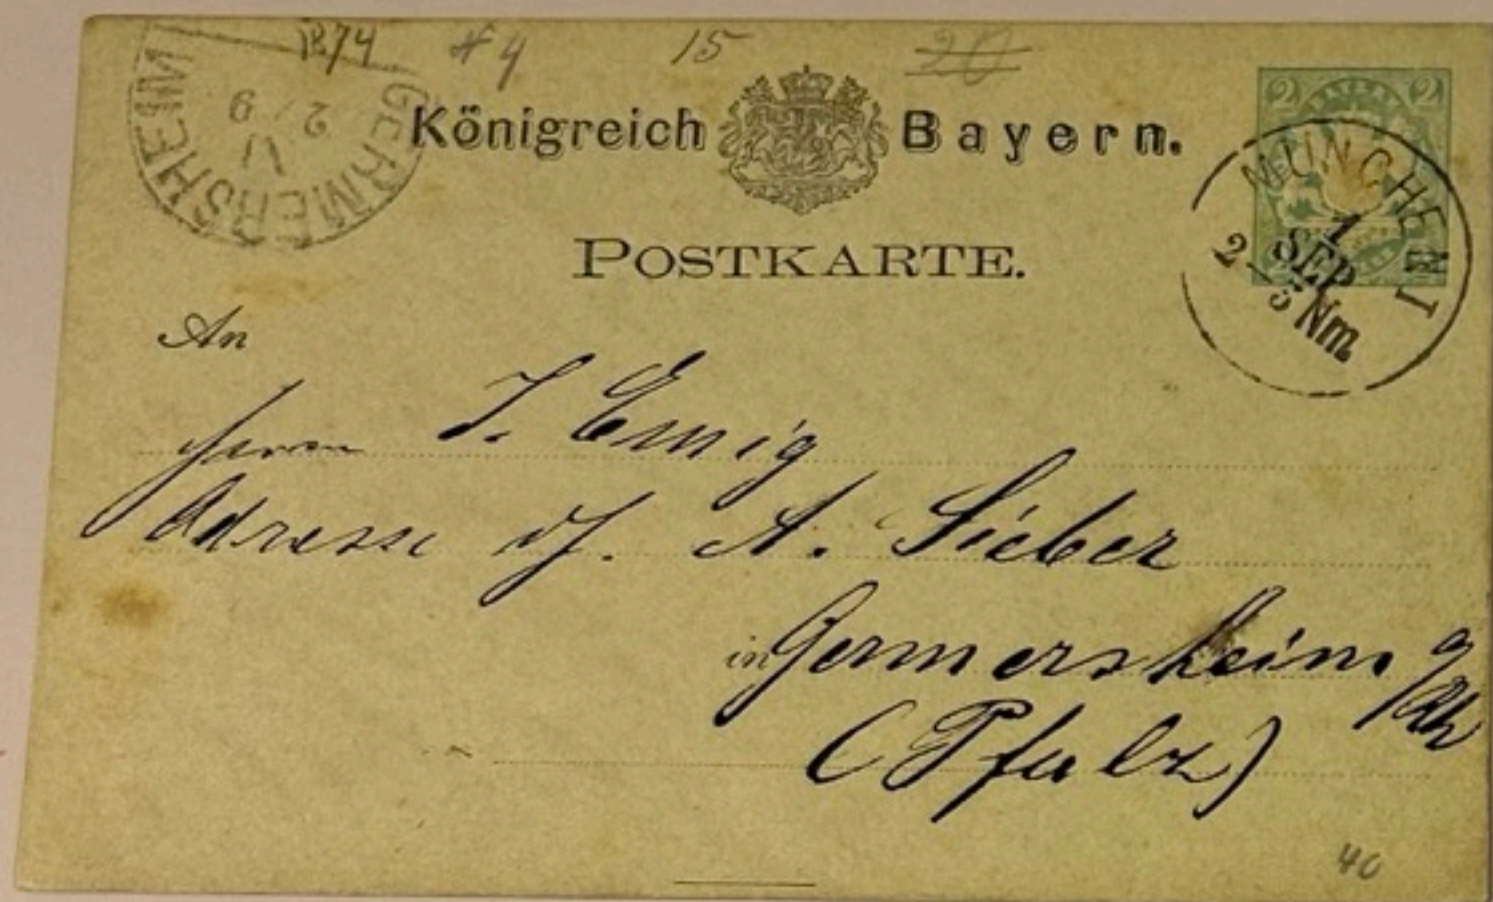 1874 #4 15 20
GERMERSHEIM
2/9
VI
Königreich Bayern.
2 BAYERN 2
MÜNCHEN I
1
SEP
2-5 Nm.
POSTKARTE.
An
Herrn J. Emig
Adresse A. Sieber
in Germersheim a/Rh
(Pfalz)
40